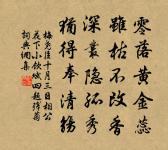 零落黃金蕊
雖枯不改香
深叢隱孤秀
猶得奉清觴
梅堯臣十月三日相公
花下小飲賦四題殘菊
詞典網集